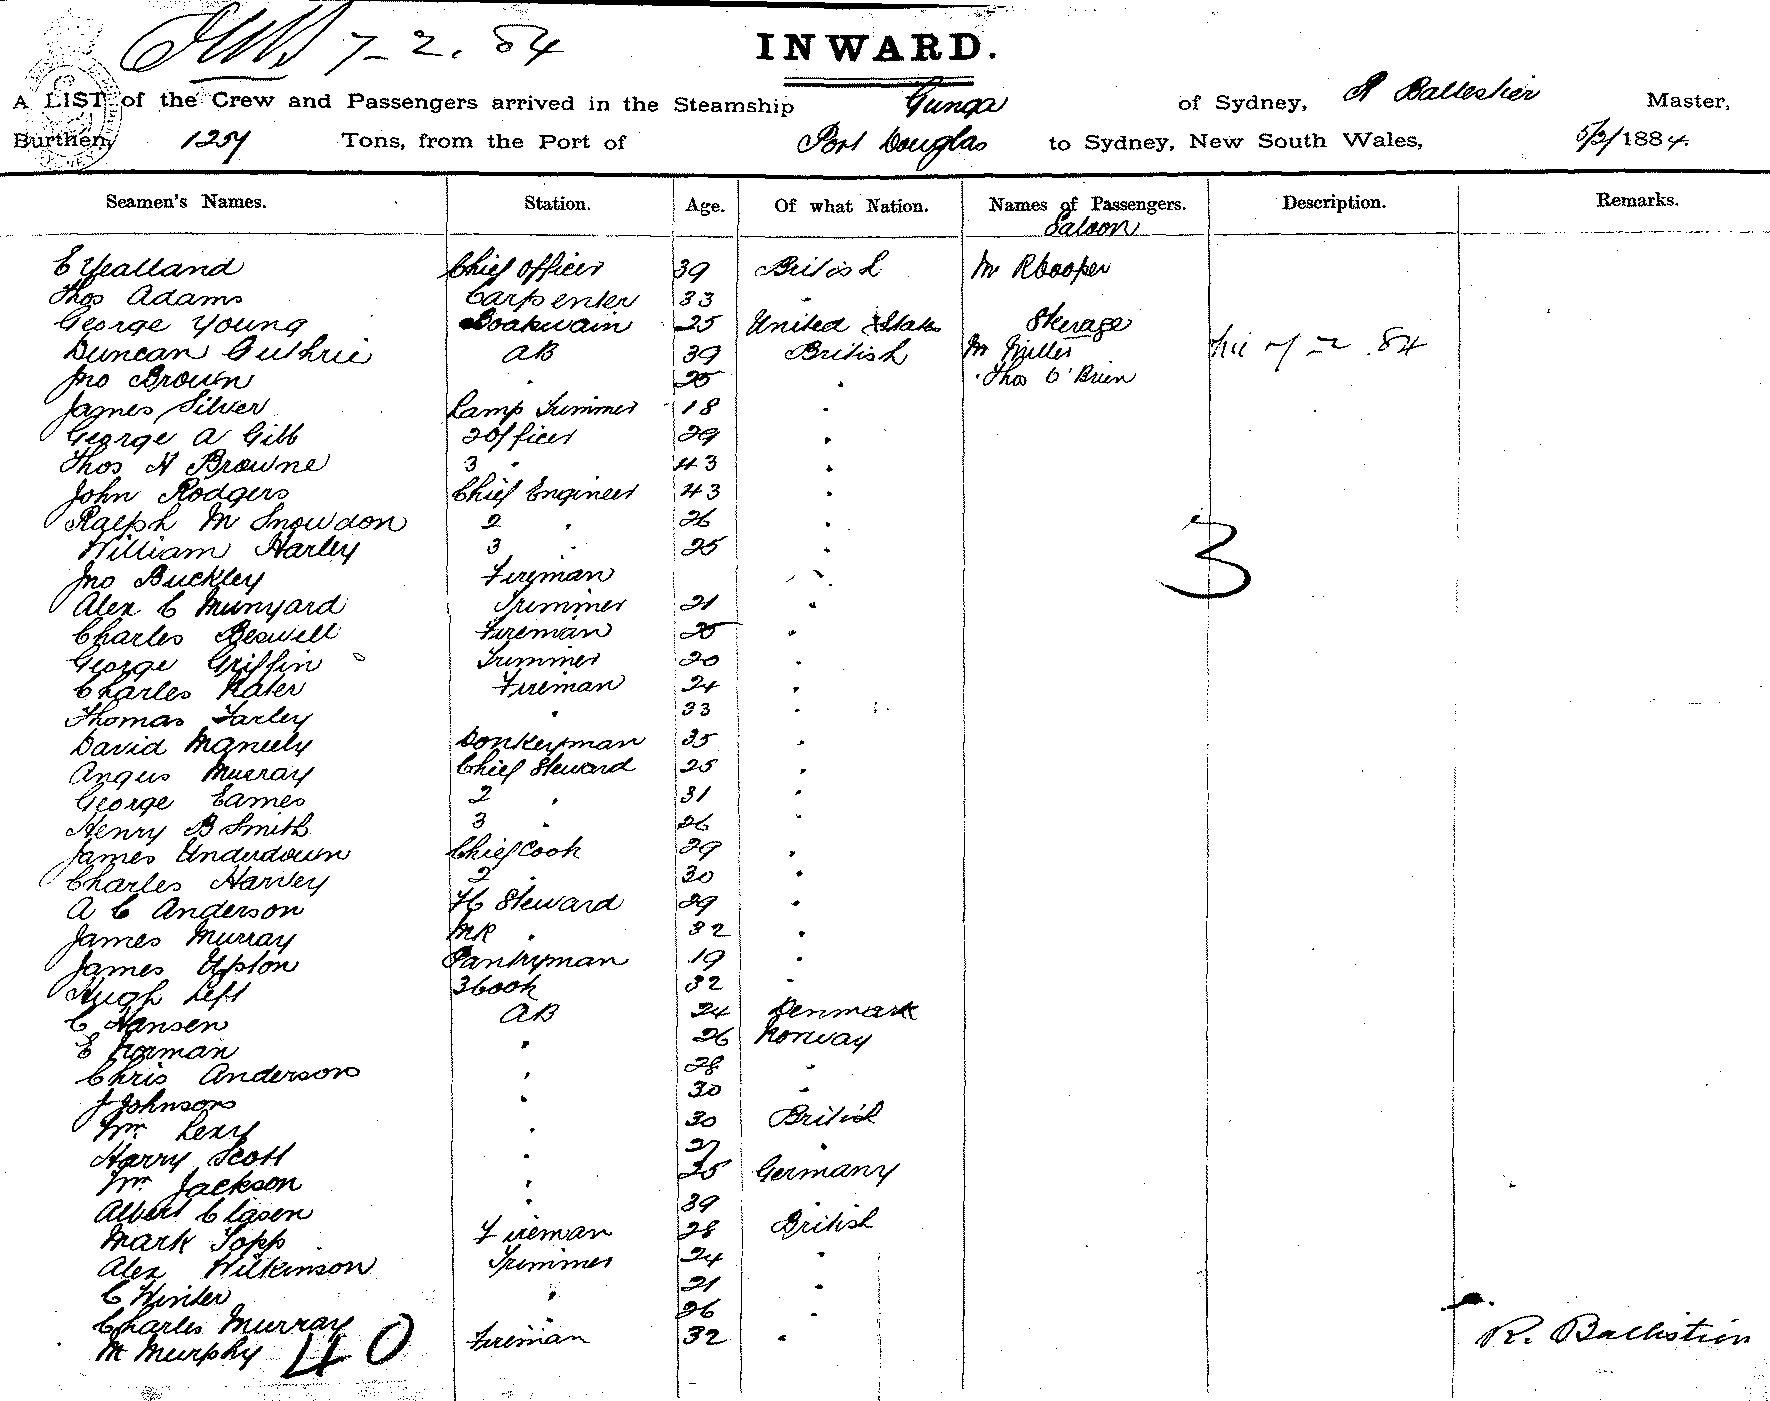 7-2.84
INWARD.
A LIST of the Crew and Passengers arrived in the Steamship Gunga of Sydney, R Ballestier Master,
Burthen, 1257 Tons, from the Port of Port Douglas to Sydney, New South Wales, 5/2/1884.
Seamen's Names. Station. Age. Of what Nation. Names of Passengers. Description. Remarks.
Saloon
E Yealland Chief Officer 39 British Mr R Cooper
Thos Adams Carpenter 33 "
George Young Boatswain 25 United States Sterage
Duncan Guthrie AB 39 British Mr Miller 7-2.84
Jno Brown " 25 " Thos O'Brien
James Silver Lamp Trimmer 18 "
George A Gibb 2 Officer 29 "
Thos H Browne 3 " 43 "
John Rodgers Chief Engineer 43 "
Ralph M Snowdon 2 " 26 "
William Harley 3 " 25 "
3
Jno Buckley Fireman "
Alex C Munyard Trimmer 21 "
Charles Beswell Fireman 25 "
George Griffin Trimmer 20 "
Charles Kater Fireman 24 "
Thomas Farley " 33 "
David McNeely Donkeyman 35 "
Angus Murray Chief Steward 25 "
George Eames 2 " 31 "
Henry B Smith 3 " 26 "
James Underdown Chief Cook 29 "
Charles Harvey 2 " 30 "
A C Anderson FC Steward 29 "
James Murray MR " 32 "
James Upton Pantryman 19 "
Hugh Left 3 Cook 32 "
C Hansen AB 24 Denmark
E Norman " 26 Norway
Chris Anderson " 28 "
J Johnson " 30 "
Wm " 30 British
Harry Scott " 27 "
Wm Jackson " 25 Germany
Albert Clasen " 39 "
Mark Topp Fireman 28 British
Alex Wilkinson Trimmer 24 "
C Winter " 21 "
Charles Murray " 26 "
M Murphy Fireman 32 "
40
R. Ballestier